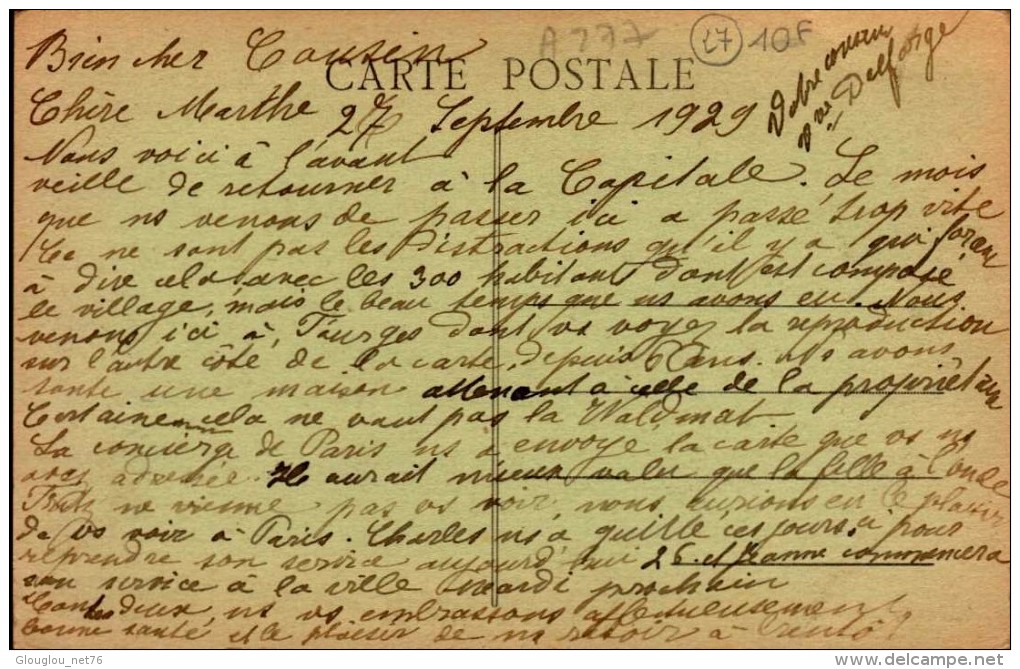 A277 27 10F
Bien cher Cousin
CARTE POSTALE
Chère Marthe 27 Septembre 1929
Votre cousin
Vve Delforge
Nous voici à l'avant
veille de retourner à la Capitale. Le mois
que ns venons de passer ici a passé trop vite
Ce ne sont pas les distractions qu'il y a qui
à dire cela avec les 300 habitants dont est composé
le village, mais le beau temps que ns avons eu. Nous
venons ici à Thurges dont vs voyez la reproduction
sur l'autre côté de la carte, depuis 6 ans. Ns avons
toute une maison attenant à celle de la propriétaire
Certainement cela ne vaut pas la Waldmat
La concierge de Paris ns a envoyé la carte que vs ns
avez adressée. Il aurait mieux valu que la fille à l'oncle
Fritz ne vienne pas vs voir, nous aurions eu le plaisir
de vs voir à Paris. Charles ns a quitté ces jours ci pour
reprendre son service aujourd'hui 26 et Jeanne commencera
son service à la ville Mardi prochain
Tous les deux, ns vs embrassons affectueusement
bonne santé et le plaisir de ns revoir à bientôt
Glouglou_net76
© delcampe.net